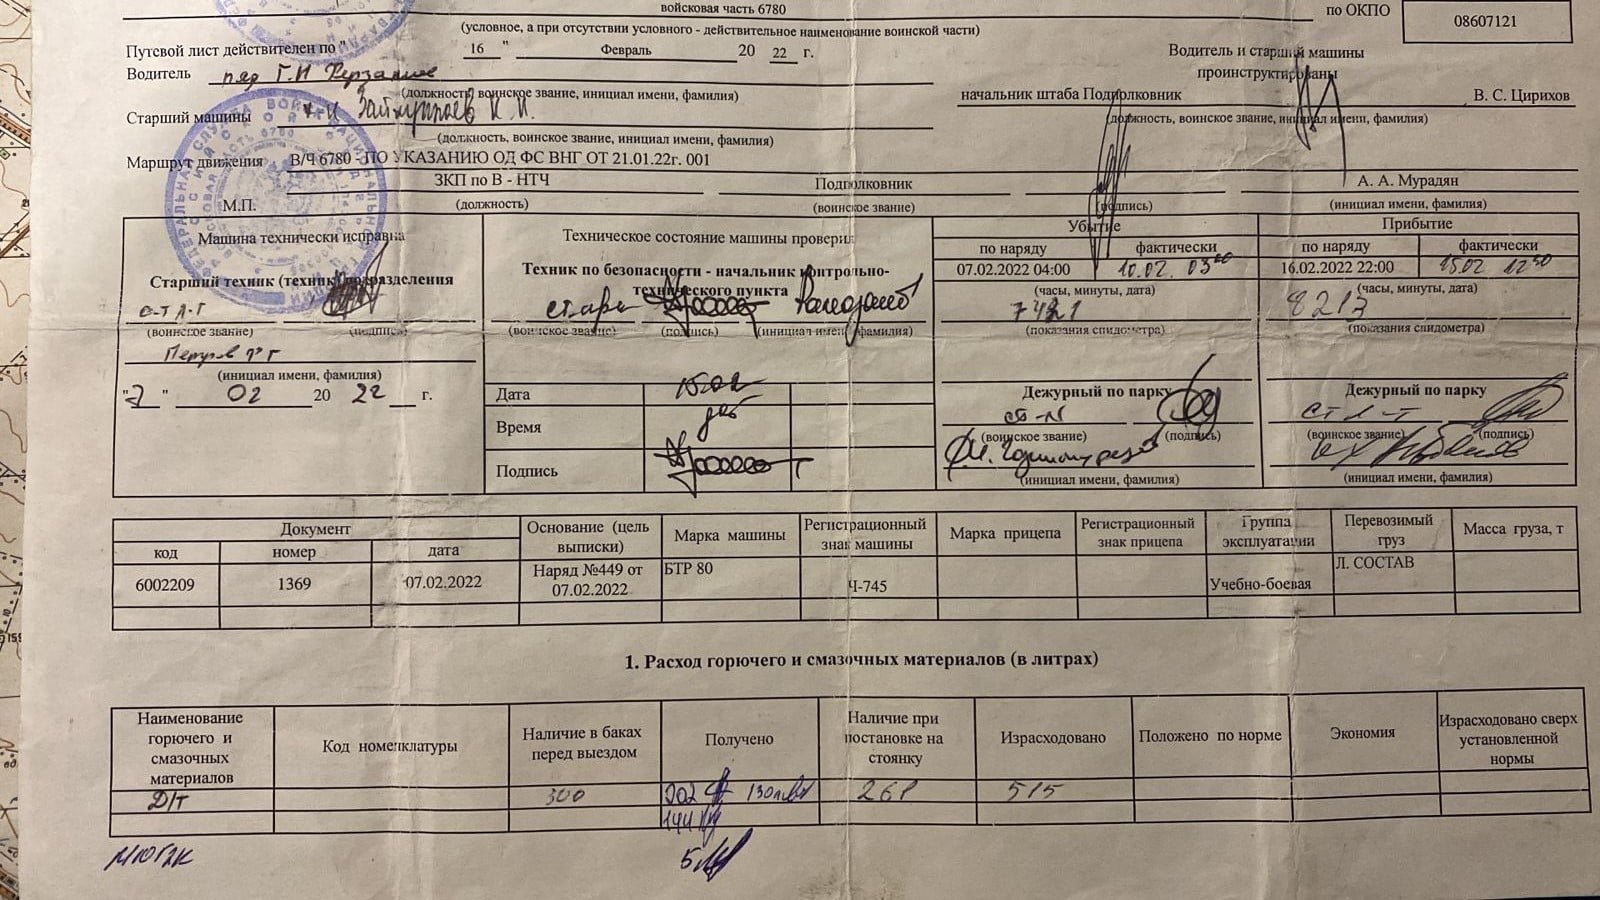 войсковая часть 6780
по ОКПО 08607121
(условное, а при отсутствии условного - действительное наименование воинской части)
Путевой лист действителен по " 16 " Февраль 20 22 г.
Водитель ряд Г.И
(должность, воинское звание, инициал имени, фамилия)
Старший машины
(должность, воинское звание, инициал имени, фамилия)
Водитель и старший машины
проинструктированы
начальник штаба Подполковник В. С. Цирихов
(должность, воинское звание, инициал имени, фамилия)
Маршрут движения В/Ч 6780 - ПО УКАЗАНИЮ ОД ФС ВНГ ОТ 21.01.22г. 001
ЗКП по В - НТЧ Подполковник А. А. Мурадян
М.П. (должность) (воинское звание) (подпись) (инициал имени, фамилия)
Машина технически исправна
Старший техник (техник) подразделения
(воинское звание) (подпись)
(инициал имени, фамилия)
02 20 22 г.
Техническое состояние машины проверил
Техник по безопасности - начальник контрольно-
технического пункта
(воинское звание) (подпись) (инициал имени, фамилия)
Дата 15.02
Время
Подпись
Убытие Прибытие
по наряду фактически по наряду фактически
07.02.2022 04:00 10.02. 03 00 16.02.2022 22:00 15.02
(часы, минуты, дата) (часы, минуты, дата)
8213
(показания спидометра) (показания спидометра)
Дежурный по парку Дежурный по парку
ст л-т
(воинское звание) (подпись) (воинское звание) (подпись)
(инициал имени, фамилия) (инициал имени, фамилия)
Документ Основание (цель выписки) Марка машины Регистрационный знак машины Марка прицепа Регистрационный знак прицепа Группа эксплуатации Перевозимый груз Масса груза, т
код номер дата
6002209 1369 07.02.2022 Наряд №449 от 07.02.2022 БТР 80 Ч-745 Учебно-боевая Л. СОСТАВ
1. Расход горючего и смазочных материалов (в литрах)
Наименование горючего и смазочных материалов Код номенклатуры Наличие в баках перед выездом Получено Наличие при постановке на стоянку Израсходовано Положено по норме Экономия Израсходовано сверх установленной нормы
Д/т 300 202 130 261 515
144
М10Г2К 5